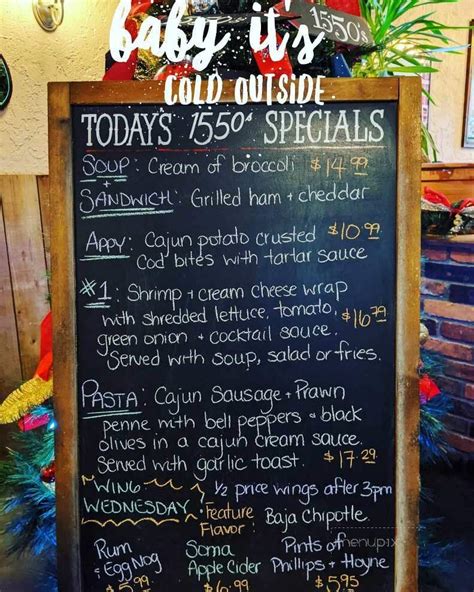 baby it's
COLD OUTSIDE
1550's
TODAY'S 1550' SPECIALS
SOUP: Cream of broccoli $14.99
+
SANDWICH: Grilled ham + cheddar
APPY: Cajun potato crusted $10.99
Cod bites with tartar sauce
#1: Shrimp + cream cheese wrap
with shredded lettuce, tomato, $16.79
green onion + cocktail sauce.
Served with soup, salad or fries.
PASTA: Cajun Sausage + Prawn
penne with bell peppers + black
olives in a cajun cream sauce.
Served with garlic toast. $17.29
WING WEDNESDAY: 1/2 price wings after 3pm
Feature Flavor: Baja Chipotle
Rum + Egg Nog $5.99
Soma Apple Cider
Pints of Phillips + Hoyne $5.95
menupix